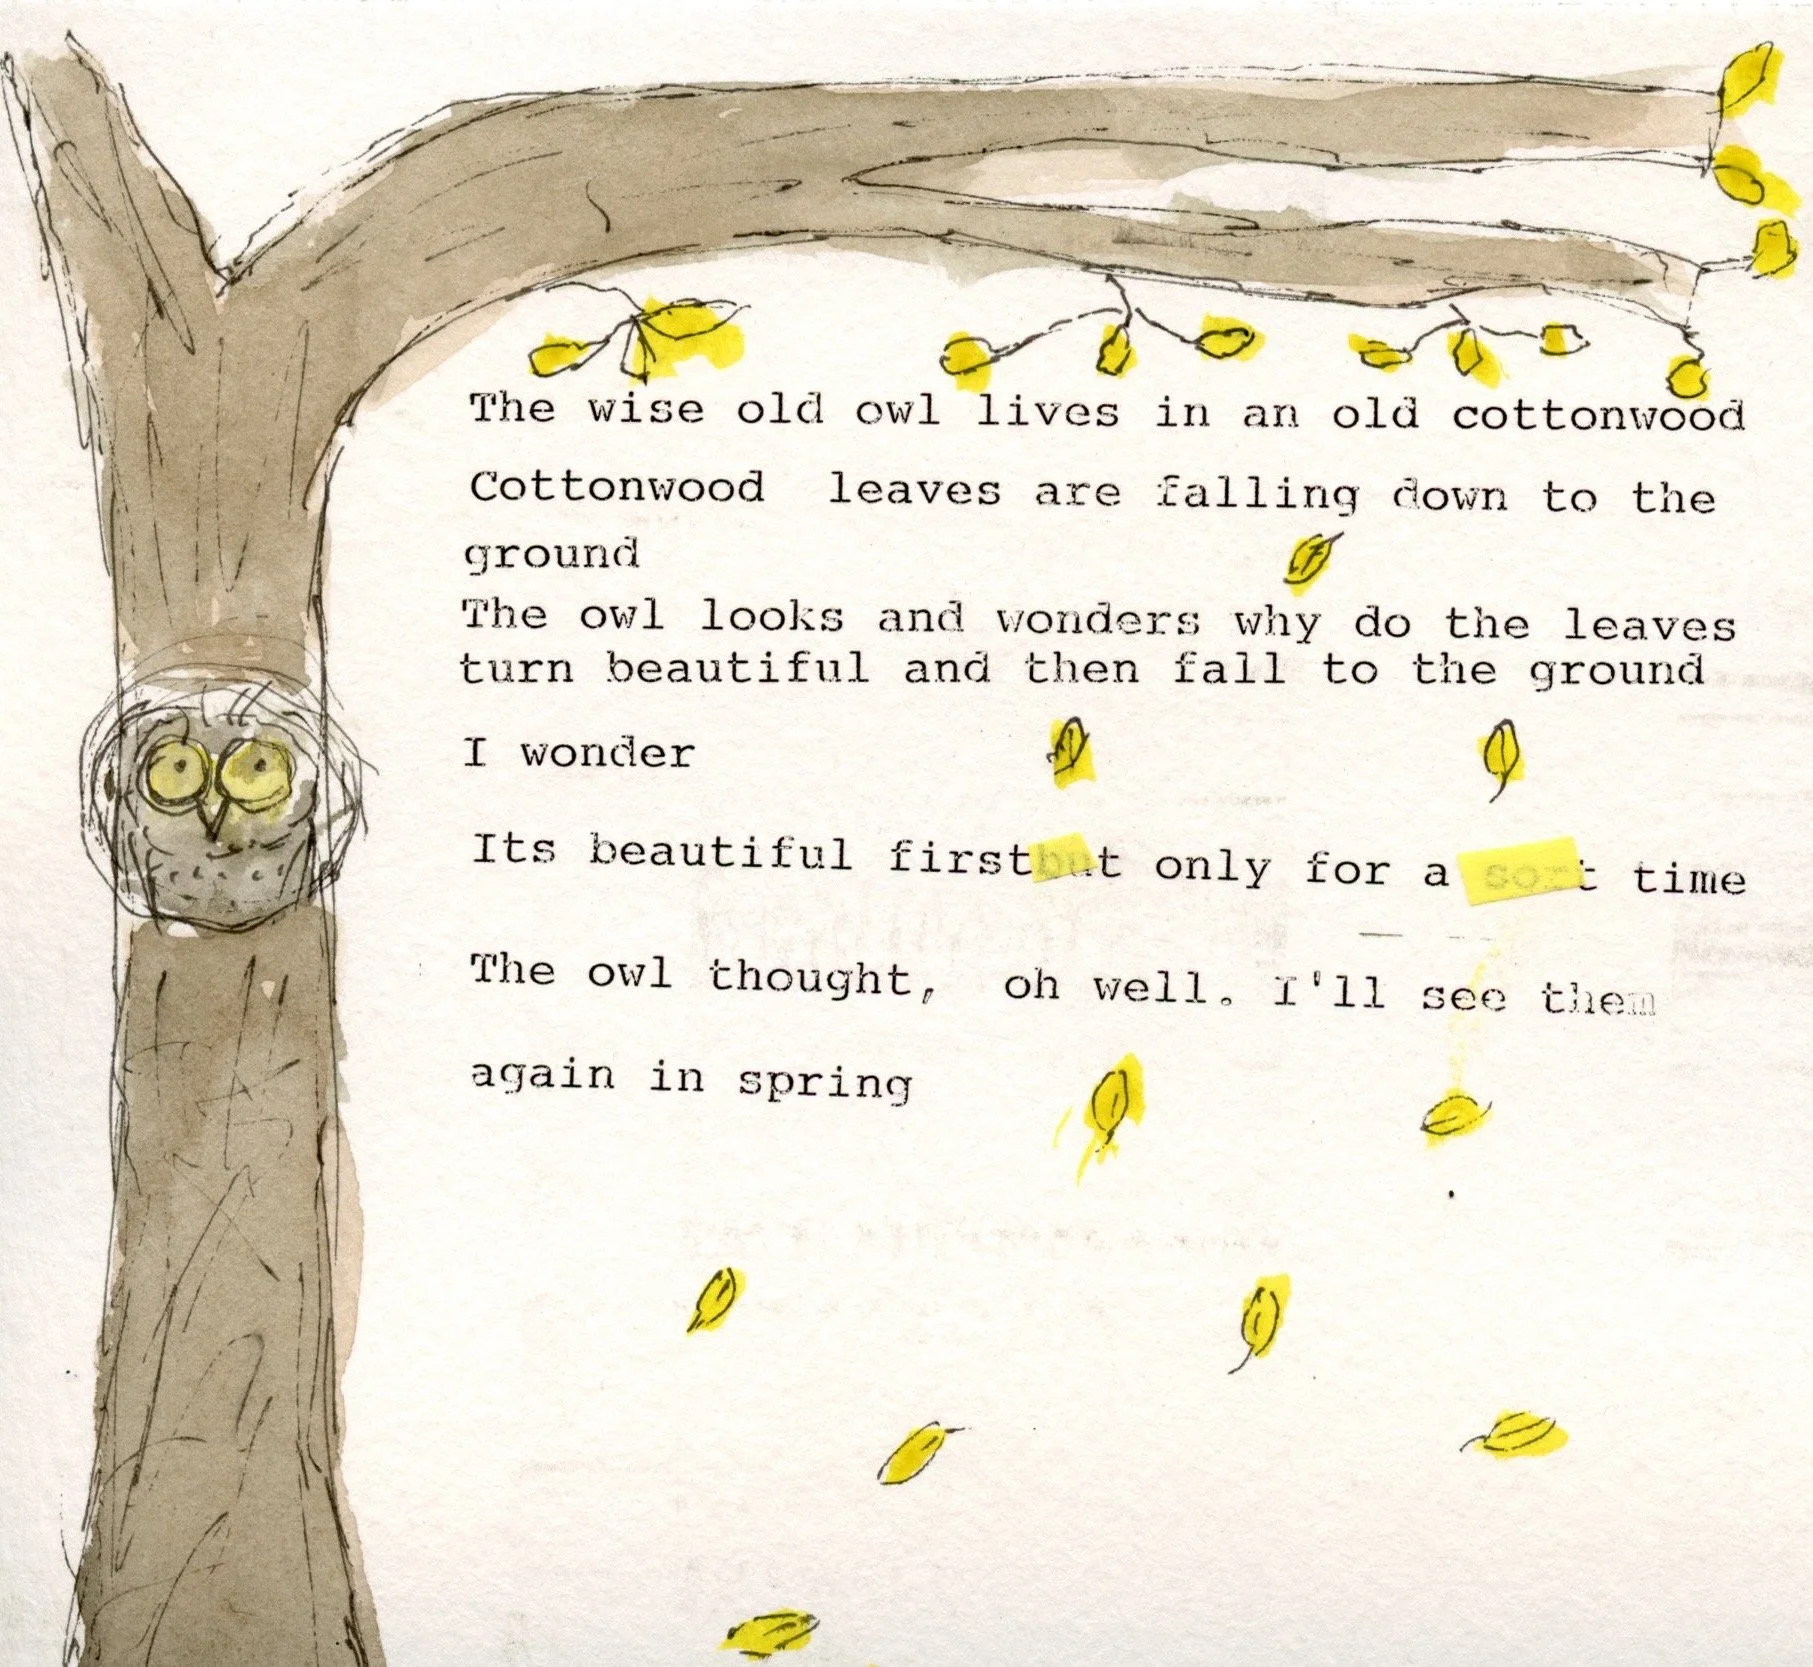 The wise old owl lives in an old cottonwood
Cottonwood leaves are falling down to the
ground
The owl looks and wonders why do the leaves
turn beautiful and then fall to the ground
I wonder
Its beautiful firstbut only for a sort time
The owl thought, oh well. I'll see them
again in spring